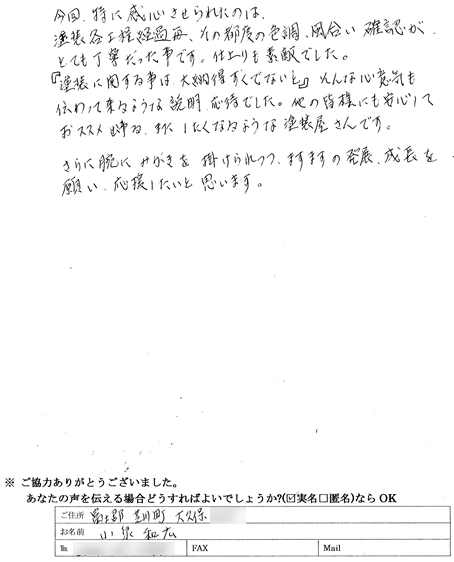 今回、特に感心させられたのは、
塗装各工程経過毎、その都度の色調、風合い確認が
とても丁寧だった事です。仕上りも素敵でした。
『塗装に関する事は、大納得ずくでないと』そんな心意気も
伝わって来るような説明、応待でした。他の皆様にも安心して
おススメ出来る、またしたくなるような塗装屋さんです。
さらに腕にみがきを掛けられつつ、ますますの発展、成長を
願い、応援したいと思います。
※ ご協力ありがとうございました。
あなたの声を伝える場合どうすればよいでしょうか?(☑実名□匿名)なら OK
ご住所 富士郡 芝川町 大久保
お名前 小泉 和広
℡ FAX Mail